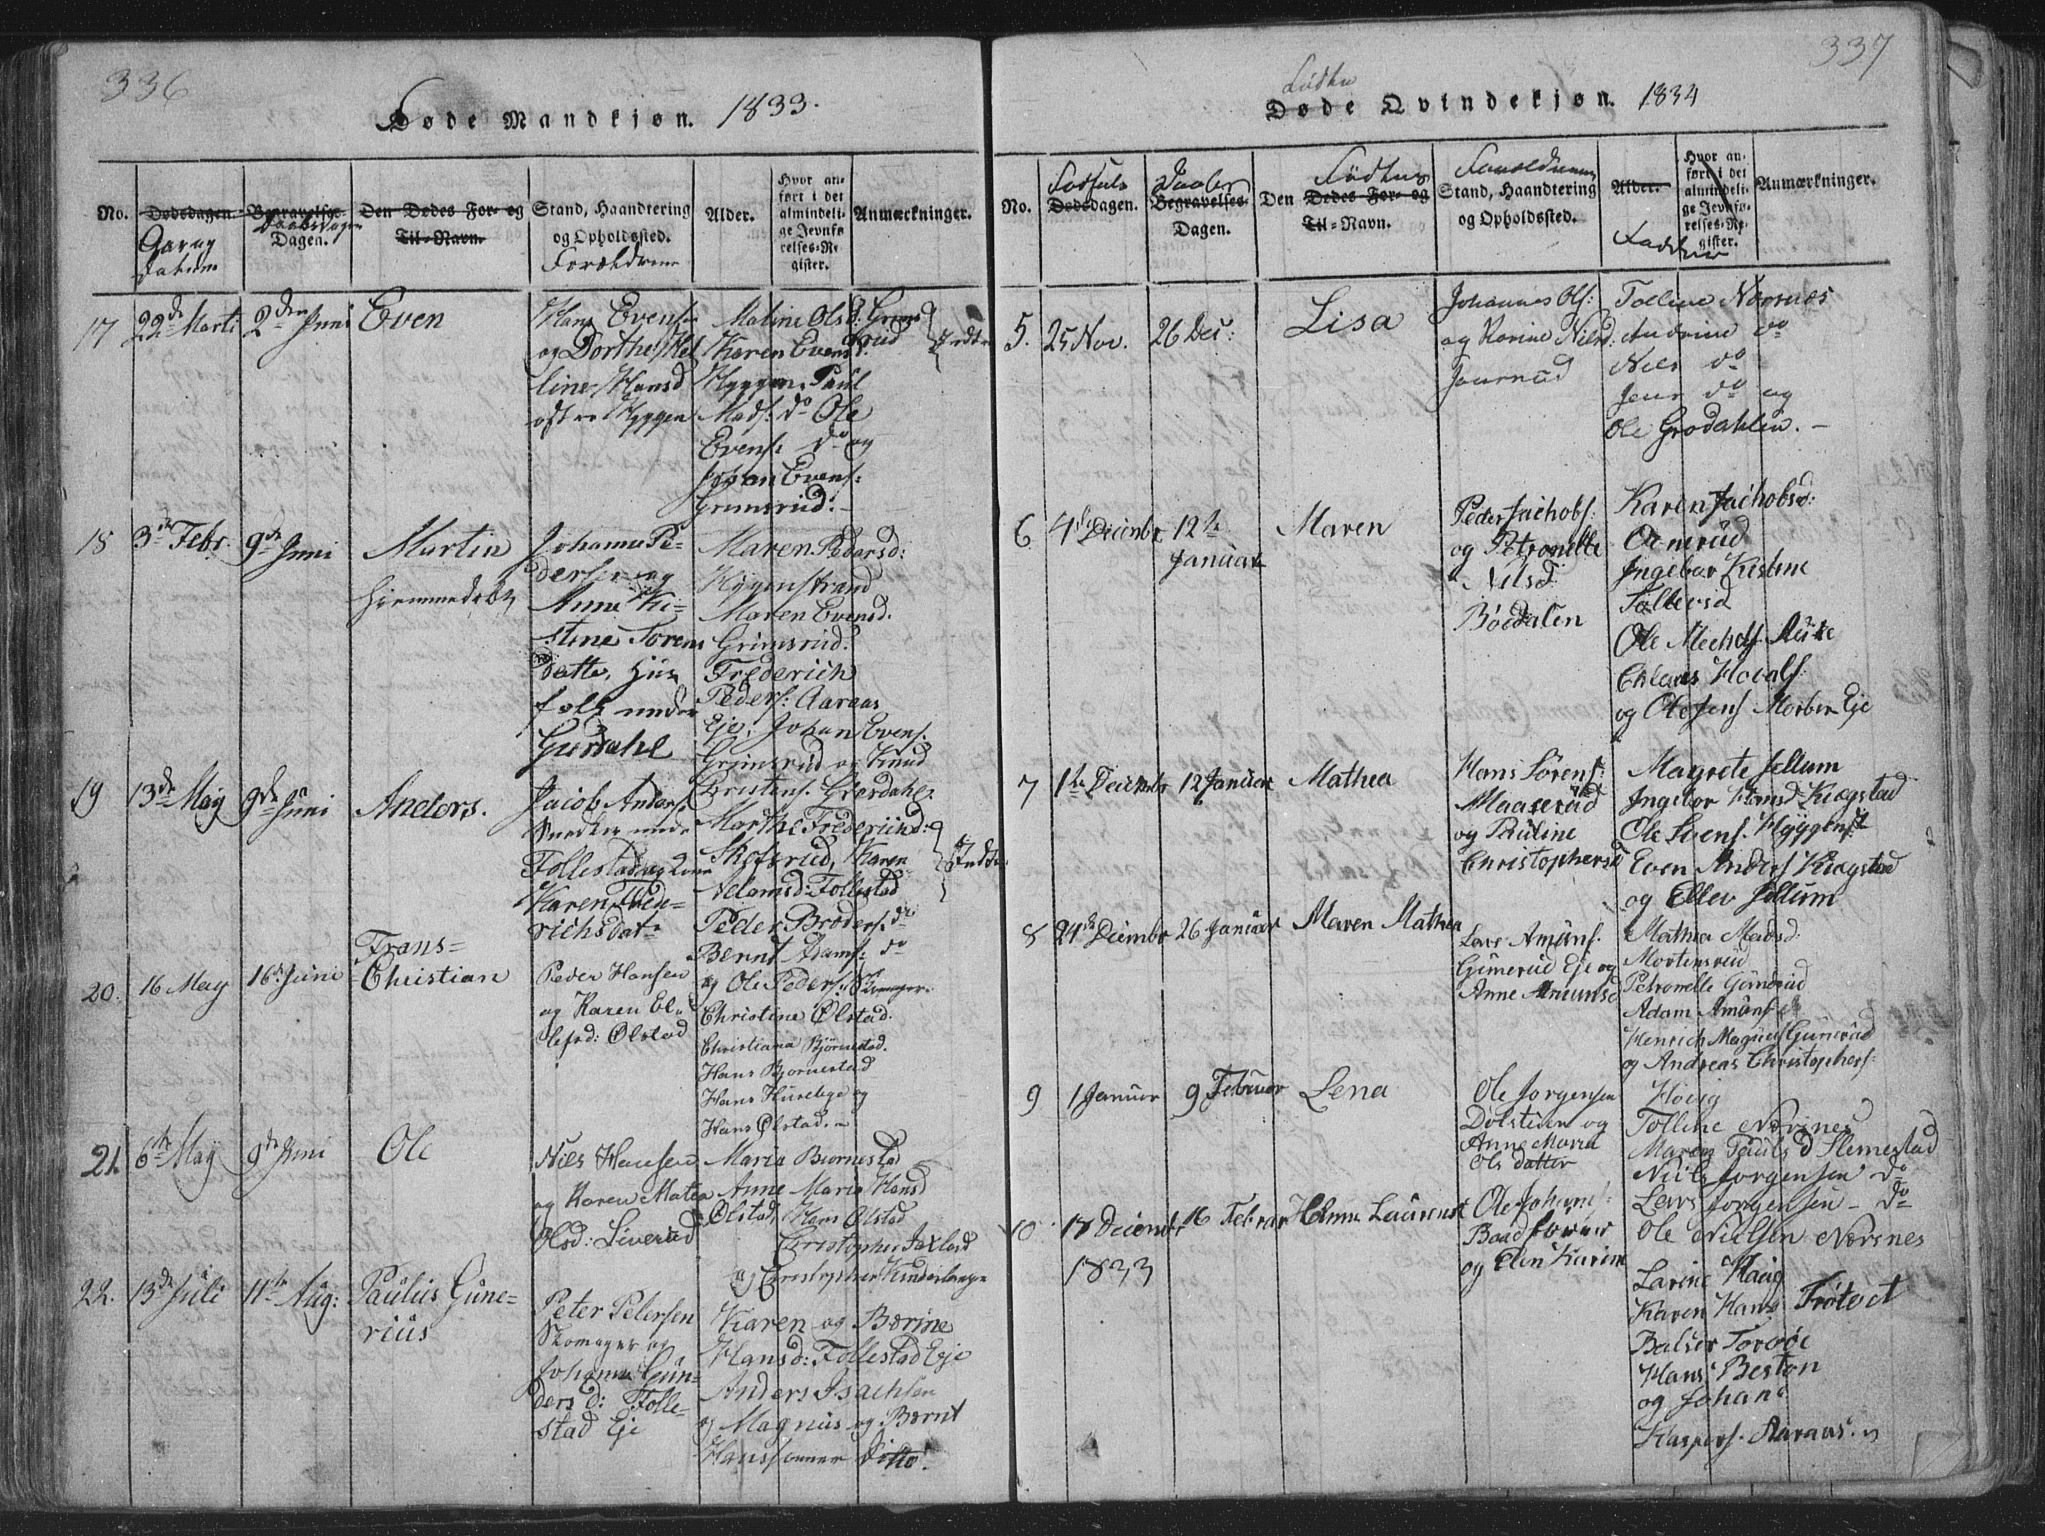 336
Døde Mandkjøn. 1833.
No.
Dødsdagen.
Begravelses-
Dagen.
Daabsdagen
Den Dødes For- og
Til-Navn.
Stand, Haandtering
og Opholdssted.
Forældrene
Alder.
Hvor an-
ført i det
almindeli-
ge Jevnfø-
relses-Re-
gister.
Anmærkninger.
17 22de Marti 2den Juni Even
Hans Evens.
og Dorthe Hel
line Hansd
Hyggen
Maline Olsd. Grims
rud
Karen Evensd.
Hyggen, Paul
Mads. do Ole
Evens: do og
Johan Evens:
Grimsrud:
18 3de Febr. 9de Juni Martin
hjemmedøbt
Johannes Pe-
dersen og
Anne Ki-
stine Sørens
datter, Hus
folk under
Gierdahl
Maren Pedersd:
Hyggenstrand
Maren Evensd.
Grimsrud.
Frederich
Peders: Aaraas
Eje, Johan Evens.
Grimsrud og Knud
Christens. Gierdahl.
19 13de May 9de Juni Anders.
Jacob Anders.
Snedker under
Follestad og Kone
Karen Fride-
richsdat.
Marthe Frederiksd:
Skofsrud, Karen
Adamsd: Follestad
Peder Broders. do
Bernt Adams: do
og Ole Peders: Skomager.
20. 16 May 16de Juni
Frans
Christian
Peder Hansen
og Karen El-
lefsd: Ølstad
Christine Ølstad.
Christiana Bjørnestad.
Hans Bjørnestad
Hans Hurebye og
Hans Ølstad.
21. 6te May 9de Juni Ole
Niels Hansen
og Karen Matea
Olsd: Liverud
Maria Biørnestad
Anne Maria Hansd
Ølstad, Hans Ølstad
Christopher
og Christopher Kinderlange
22. 13de Juli 11te Aug: Paulus Gune-
rius
Peter Petersen
Skomager og
Johanne Gun-
ders d: Folle-
stad Eje
Karen og Berine
Hansd: Follestad Eje
Anders Isachsen
og Magnus og Bernt
Hanssønner Ditto.
337
Fødte
Døde Qvindekjøn. 1834
No.
Fødsels
Dødsdagen.
Daabs
Begravelses-
Dagen.
Den Dødes For- og
Til-Navn.
Fødtes
Forældrenes
Stand, Haandtering
og Opholdssted.
Alder.
Faddere
Hvor an-
ført i det
almindeli-
ge Jevnfø-
relses-Re-
gister.
Anmærkninger.
5. 25 Nov. 26 Dec: Lisa
Johannes Ols:
og Karine Nilsd:
Jousrud
Tolline Nærsnæs
Andrine do
Niels do
Jens do og
Ole Grodahlen.
6 4de Decimbr 12te
Januar
Maren
Peder Jachobs:
og Petronelle
Nilsd
Bødalen
Karen Jachobsd:
Ornerud
Ingebor Kistine
Tollevsd
Ole Mechels.
Hovals.
og Ole Jens. Morber Eje
7 1te Decimbr 12 Januar Mathea
Hans Sørens:
Maaserud
og Pauline
Christophersd
Magrete Jellum
Ingebor Hansd Kiøgstad
Ole Svens. Hyggen
Even Anders Kiøgstad
og Ellev Jellum
8 24de Decimbr 26 Januar Maren Mathea
Lars Amuns.
Gunerud Eje og
Anne Amunsd
Mathea Madsd.
Mortensrud
Petronelle Gunerud
Adam Amuns.
Henrich Magnus Gunerud
og Andreas Christophers.
9 1 Januar 9 Februar Lena
Ole Jorgensen
Dølstien og
Anne Maria
Ols datter
Høvig
Tolline Nersnes
Maren Pauls d Slemestad
Niels Jorgensen do
Lars Jorgensen do
Ole Nielsen Nersnes
10 17 Decimbr 16 Februar Helene Laurense
1833
Ole Johans:
Baadførner
og Elen Karine
Larine Haug
Karen Hans Frøtvet
Balser Torvøe
Hans Beston
og Johan
Kaspers. Aaraas.